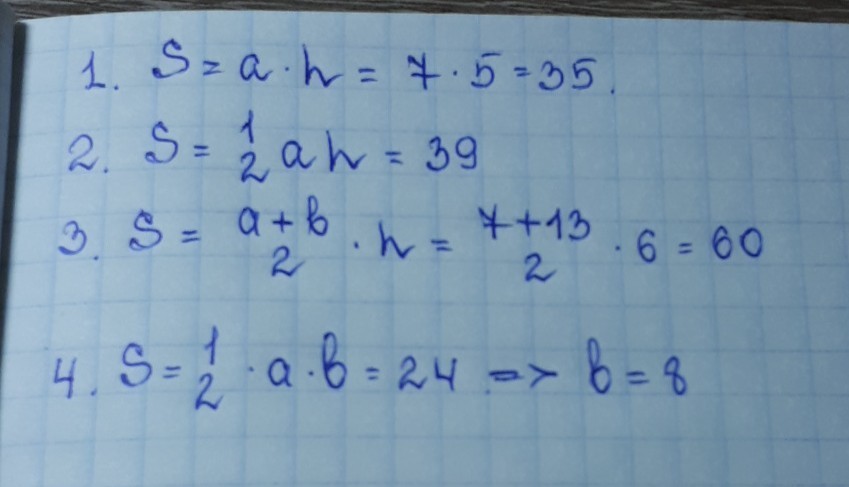 1. S = a · h = 7 · 5 = 35.
2. S = 1/2 a h = 39
3. S = a + b/2 · h = 7 + 13/2 · 6 = 60
4. S = 1/2 · a · b = 24 => b = 8